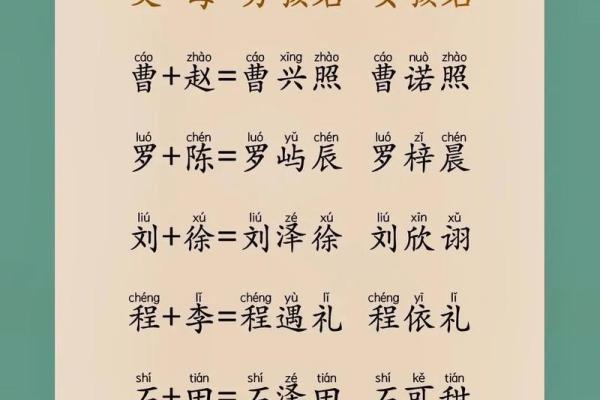 父 母 男孩名 女孩名
cáo zhào cáo xīng zhào cáo nuò zhào
曹+赵=曹兴照 曹诺照
luó chén luó yǔ chén luó zǐ chén
罗+陈=罗屿辰 罗梓晨
liú xú liú zé xú liú xīn xǔ
刘+徐=刘泽徐 刘欣诩
chéng lǐ chéng yù lǐ chéng yī lǐ
程+李=程遇礼 程依礼
shí tián shí zé tián shí kě tián
石+田=石泽田 石可甜